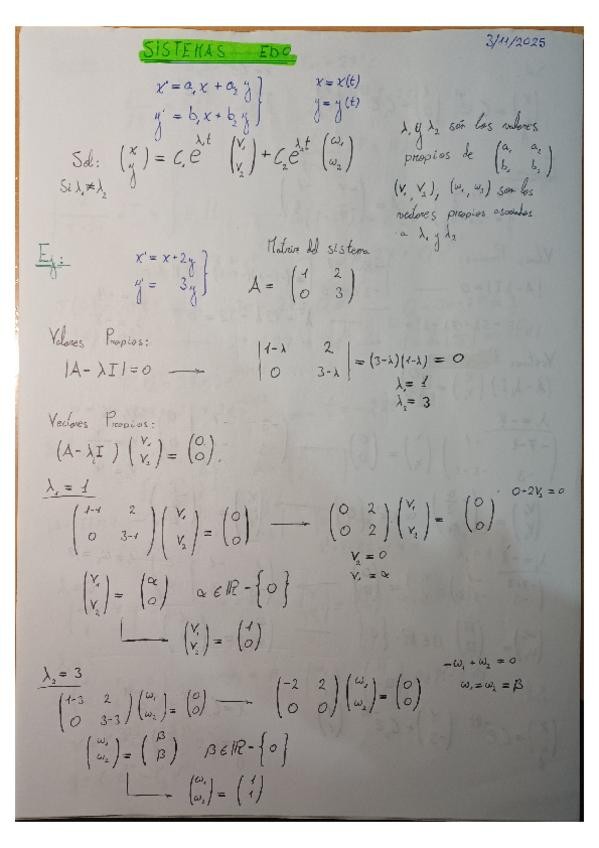 SISTEMAS EDO
3/11/2025
x' = a₁x + a₂y } x = x(t)
y' = b₁x + b₂y } y = y(t)
Sol: (x y) = C₁e^{λ₁t} (v₁ v₂) + C₂e^{λ₂t} (ω₁ ω₂)
Si λ₁ ≠ λ₂
λ₁ y λ₂ son los valores
propios de (a₁ a₂
b₁ b₂)
(v₁, v₂), (ω₁, ω₂) son los
vectores propios asociados
a λ₁ y λ₂
Ej:
x' = x + 2y }
y' = 3y }
Matriz del sistema
A = (1 2
0 3)
Valores Propios:
|A - λI| = 0 → |1-λ 2
0 3-λ| = (3-λ)(1-λ) = 0
λ₁ = 1
λ₂ = 3
Vectores Propios:
(A - λᵢI) (v₁ v₂) = (0 0).
λ₁ = 1
(1-1 2
0 3-1) (v₁ v₂) = (0 0) → (0 2
0 2) (v₁ v₂) = (0 0)
0+2v₂ = 0
v₂ = 0
v₁ = α
(v₁ v₂) = (α 0) α ∈ ℝ - {0}
→ (v₁ v₂) = (1 0)
λ₂ = 3
(1-3 2
0 3-3) (ω₁ ω₂) = (0 0) → (-2 2
0 0) (ω₁ ω₂) = (0 0)
-ω₁ + ω₂ = 0
ω₁ = ω₂ = β
(ω₁ ω₂) = (β β) β ∈ ℝ - {0}
→ (ω₁ ω₂) = (1 1)